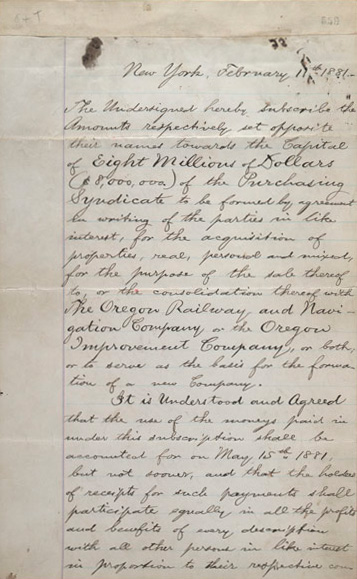 S + T
New York, February 11th 1881.
The Undersigned hereby subscribe the
Amounts respectively set opposite
their names towards the Capital
of Eight Millions of Dollars
($8,000,000) of the Purchasing
Syndicate to be formed by agreement
in writing of the parties in like
interest, for the acquisition of
properties, real, personal and mixed,
for the purpose of the sale thereof
to, or the consolidation thereof with
The Oregon Railway and Navi-
gation Company, or the Oregon
Improvement Company, or both,
or to serve as the basis for the forma-
tion of a new Company.
It is Understood and Agreed
that the use of the moneys paid in
under this subscription shall be
accounted for on May 15th 1881,
but not sooner, and that the holders
of receipts for such payments shall
participate equally, in all the profits
and benefits of every description
with all other persons in like interest
in proportion to their respective con